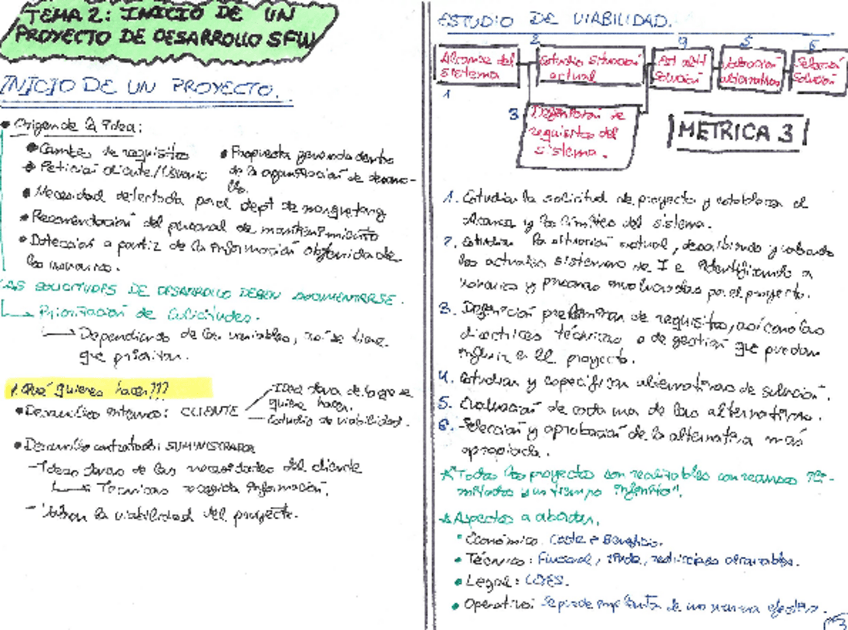 TEMA 2: INICIO DE UN
PROYECTO DE DESARROLLO SFW
INICIO DE UN PROYECTO.
• Origen de la idea:
• Cambios de requisitos
• Petición cliente/Usuario
• Propuesta generada dentro
de la organización de desarro-
llo.
• Necesidad detectada por el dept de marquetang
• Recomendación del personal de mantenimiento
• Detección a partir de la información obtenida de
los usuarios.
LAS SOLICITUDES DE DESARROLLO DEBEN DOCUMENTARSE.
Priorización de solicitudes.
Dependiendo de las variables, se tiene
que priorizar.
¿Qué quieres hacer???
• Desarrollo interno: CLIENTE
Idea clara de lo que se
quiere hacer.
Estudio de viabilidad.
• Desarrollo contratado: SUMINISTRADOR
- Ideas claras de las necesidades del cliente
Técnicas recogida información.
- la viabilidad del proyecto.
ESTUDIO DE VIABILIDAD.
Alcance del
sistema
1
2
Estudio situación
actual
3
Definición de
requisitos del
sistema.
Est altt
Solución
5
alternativas
6
Selección
Solución
METRICA 3
1. Estudiar la solicitud de proyecto y establecer el
alcance y los límites del sistema.
2. Estudiar la situación actual, describiendo y
los actuales sistemas de I e identificando a
usuarios y procesos involucrados por el proyecto.
3. Definición preliminar de requisitos, así como las
directrices técnicas o de gestión que puedan
influir en el proyecto.
4. Estudiar y especificar alternativas de solución.
5. Evaluación de cada una de las alternativas.
6. Selección y aprobación de la alternativa más
apropiada.
* "Todos los proyectos son realizables con recursos ili-
mitados y un tiempo infinito".
* Aspectos a abordar.
• Económico: Coste - Beneficio.
• Técnico: Funcional,
• Legal: LEYES.
• Operativo: Se puede de una manera efectiva.